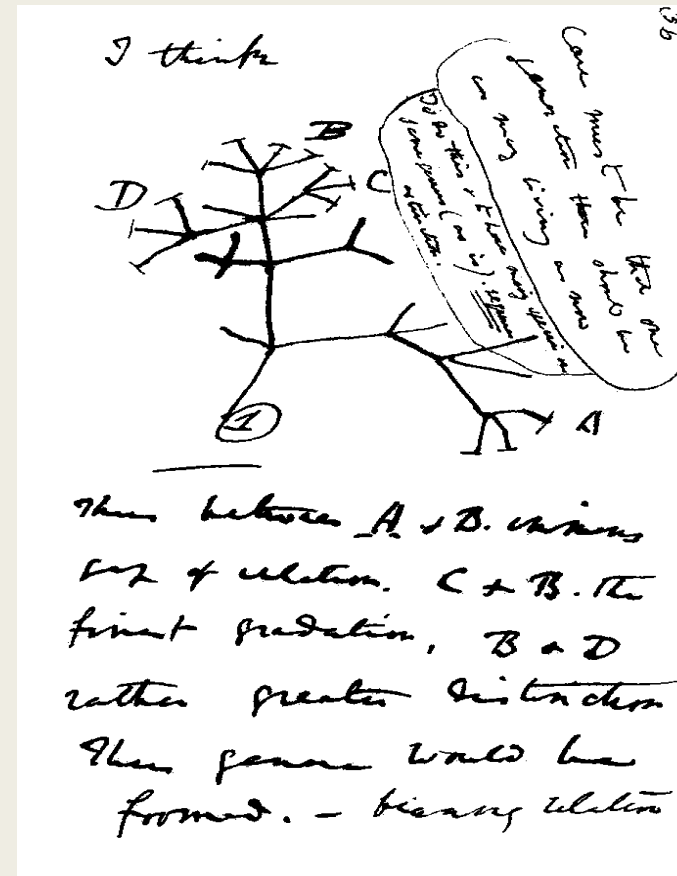 I think
36
B
C
D
A
1
Case must be that one
generation then should be
as many living as now
To do this & to have many species in
same genus (as is). requires
extinction.
Thus between A & B. immens
gap of relation. C & B. The
finest gradation, B & D
rather greater distinction
Thus genera would be
formed. — bearing relation